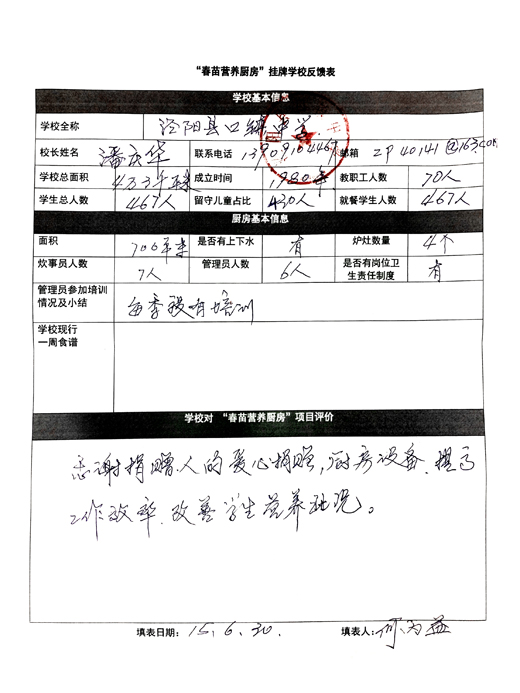 “春苗营养厨房”挂牌学校反馈表
学校基本信息
学校全称 泾阳县口镇中学
校长姓名 潘庆华 联系电话 邮箱 ZP40141@163.com
学校总面积 成立时间 1980年 教职工人数 70人
学生总人数 467人 留守儿童占比 430人 就餐学生人数 467人
厨房基本信息
面积 700平米 是否有上下水 有 炉灶数量 4个
炊事员人数 7人 管理员人数 6人 是否有岗位卫
生责任制度 有
管理员参加培训
情况及小结 每季没有培训
学校现行
一周食谱
学校对 “春苗营养厨房”项目评价
感谢捐赠人的爱心捐赠,厨房设备、提高
工作效率、改善学生营养状况。
填表日期: 15.6.30. 填表人: 何为益